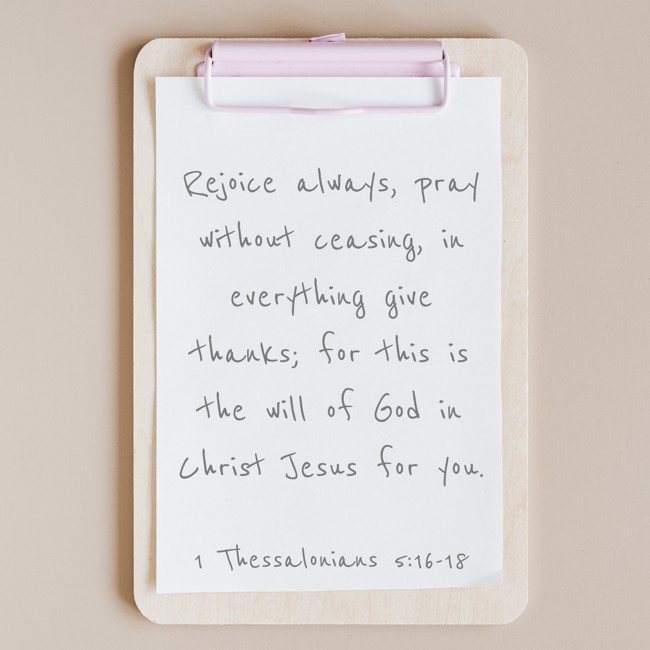 Rejoice always, pray
without ceasing, in
everything give
thanks; for this is
the will of God in
Christ Jesus for you.
1 Thessalonians 5:16-18